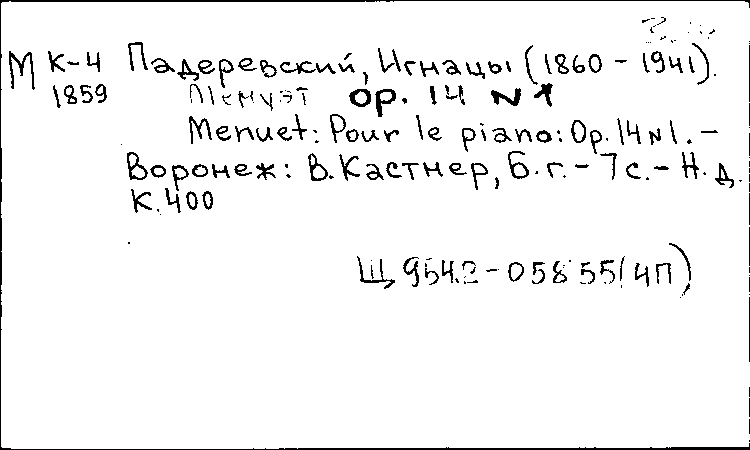 М К-4 Падеревский, Игнацы (1860 - 1941).
1859 Менуэт ор. 14 N 1
Menuet: Pour le piano: Op. 14 N 1. -
Воронеж: В. Кастнер, Б. г. - 7 с. - Н. д.
К. 400
Щ 954.2-058 55(4П)